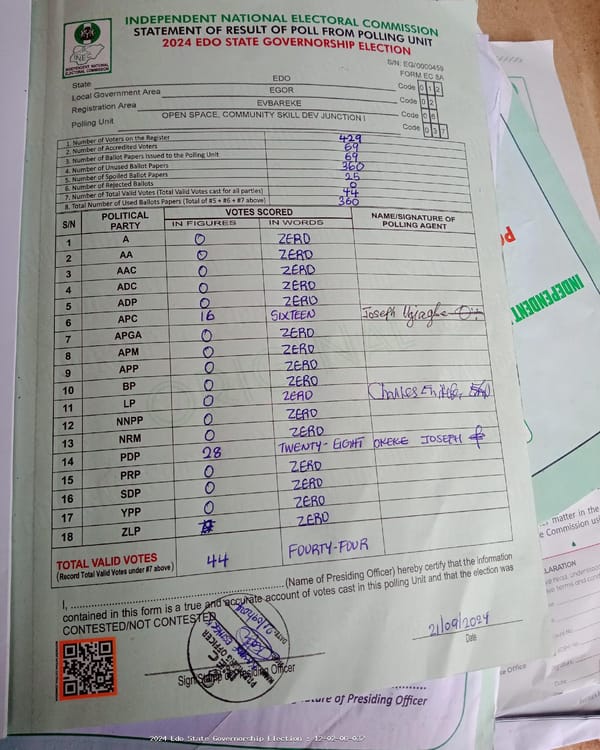 INDEPENDENT NATIONAL ELECTORAL COMMISSION
STATEMENT OF RESULT OF POLL FROM POLLING UNIT
2024 EDO STATE GOVERNORSHIP ELECTION
INEC
INDEPENDENT NATIONAL ELECTORAL COMMISSION
S/N: EG/0000459
FORM EC 8A
State EDO Code 0 1 2
Local Government Area EGOR Code 0 2
Registration Area EVBAREKE Code 0 6
Polling Unit OPEN SPACE, COMMUNITY SKILL DEV JUNCTION I Code 0 3 7
1. Number of Voters on the Register 429
2. Number of Accredited Voters 69
3. Number of Ballot Papers Issued to the Polling Unit 69
4. Number of Unused Ballot Papers 360
5. Number of Spoiled Ballot Papers 25
6. Number of Rejected Ballots 0
7. Number of Total Valid Votes (Total Valid Votes cast for all parties) 44
8. Total Number of Used Ballots Papers (Total of #5 + #6 + #7 above) 360
S/N POLITICAL PARTY VOTES SCORED NAME/SIGNATURE OF POLLING AGENT
IN FIGURES IN WORDS
1 A 0 ZERO
2 AA 0 ZERO
3 AAC 0 ZERO
4 ADC 0 ZERO
5 ADP 0 ZERO
6 APC 16 SIXTEEN Joseph
7 APGA 0 ZERO
8 APM 0 ZERO
9 APP 0 ZERO
10 BP 0 ZERO
11 LP 0 ZERO Charles
12 NNPP 0 ZERO
13 NRM 0 ZERO
14 PDP 28 TWENTY-EIGHT OKEKE JOSEPH
15 PRP 0 ZERO
16 SDP 0 ZERO
17 YPP 0 ZERO
18 ZLP ZERO
TOTAL VALID VOTES 44 FOURTY-FOUR
(Record Total Valid Votes under #7 above)
I, ........................ (Name of Presiding Officer) hereby certify that the information
contained in this form is a true and accurate account of votes cast in this polling Unit and that the election was
CONTESTED/NOT CONTESTED
21/09/2024
Date
Sign Presiding Officer
Signature of Presiding Officer
INDEPENDENT
matter in the
e Commission
LARATION
2024 Edo State Governorship Election : 12-02-06-037